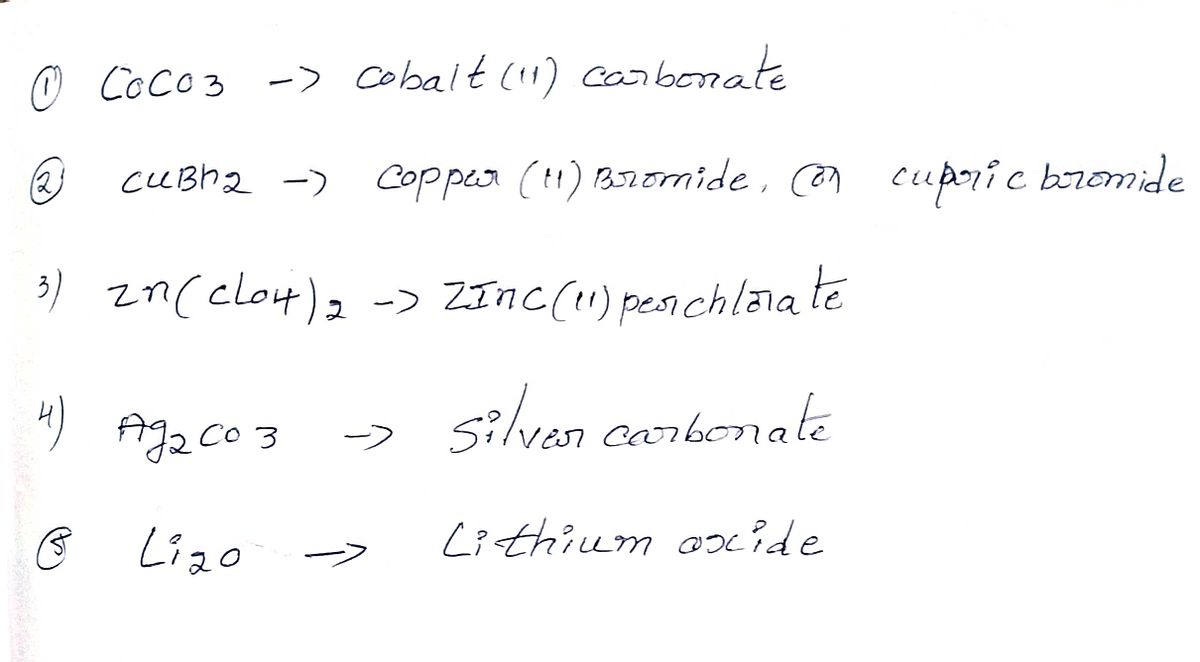 ① CoCO3 -> cobalt (11) carbonate
② CuBr2 -> copper (11) Bromide, (or cupric bromide
3) Zn(ClO4)2 -> ZInc(11) perchlorate
4) Ag2CO3 -> silver carbonate
⑤ Li2O -> Lithium oxide